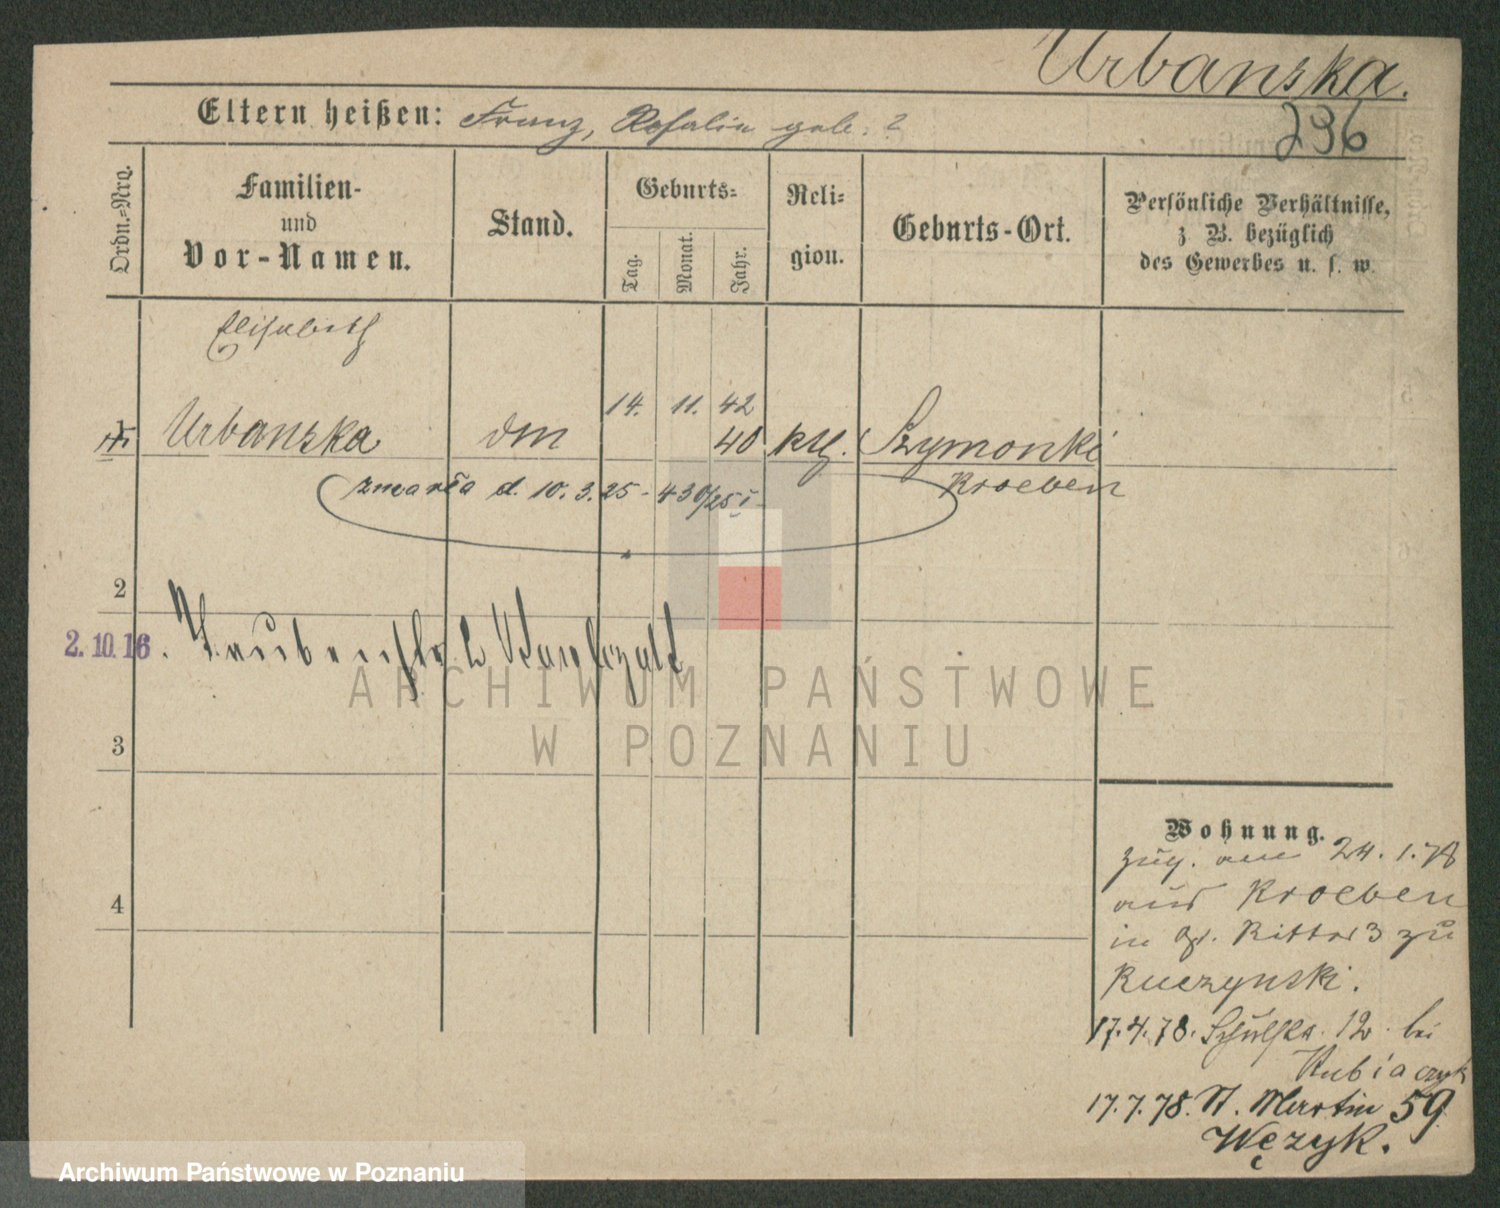 Urbanska.
296
Eltern heißen: Franz, Rosalie geb. ?
Ordn.=Nro.
Familien-
und
Vor-Namen.
Stand.
Geburts=
Tag.
Monat.
Jahr.
Reli=
gion.
Geburts-Ort.
Persönliche Verhältnisse,
z B. bezüglich
des Gewerbes u. s. w.
Elisabeth
14. 11. 42
1 Urbanska 40 kth. Szymonki
Kroeben
zmarła d. 10. 3. 25 - 430/25 I
2
2.10.16.
3
4
Wohnung.
zug. am 24. 1. 78
aus Kroeben
in gr. Ritter 3 zu
Ruczynski.
17. 4. 78. Schulstr. 12 bei
Kubiaczyk
17. 7. 78. St. Martin 59
Wężyk.
ARCHIWUM PAŃSTWOWE
W POZNANIU
Archiwum Państwowe w Poznaniu